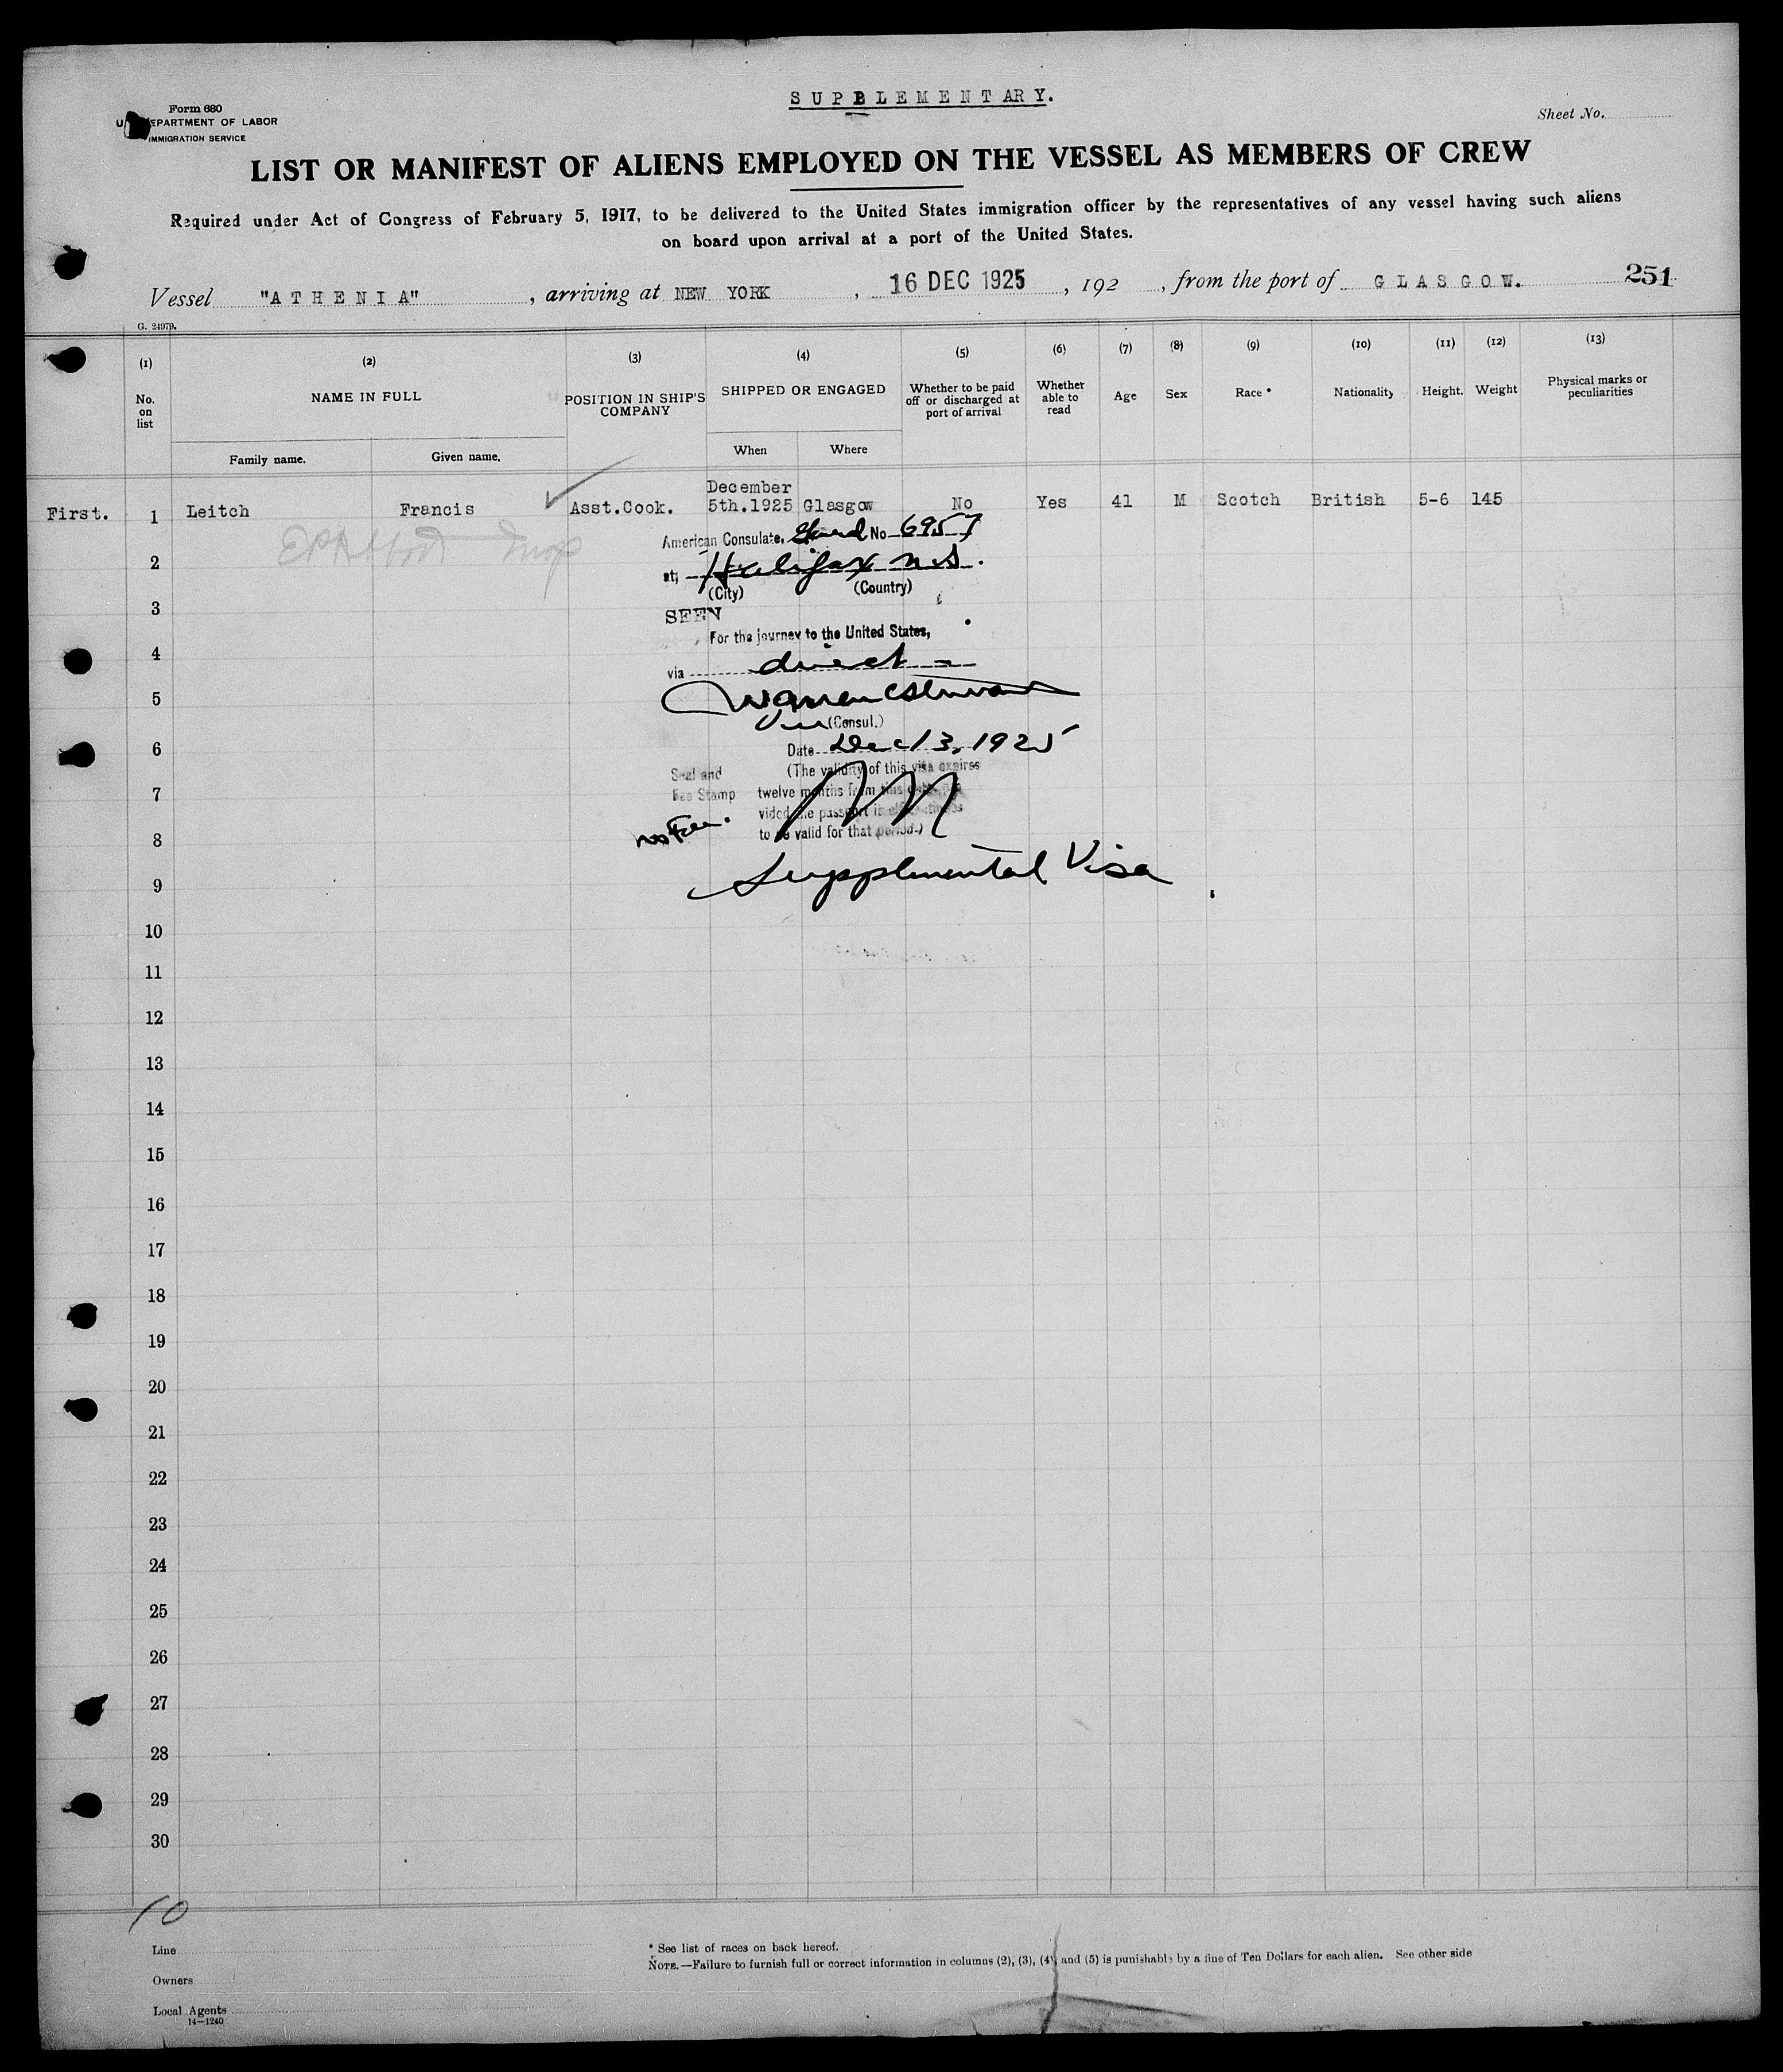 SUPPLEMENTARY.
Form 680
DEPARTMENT OF LABOR
IMMIGRATION SERVICE
Sheet No.
LIST OR MANIFEST OF ALIENS EMPLOYED ON THE VESSEL AS MEMBERS OF CREW
Required under Act of Congress of February 5, 1917, to be delivered to the United States immigration officer by the representatives of any vessel having such aliens
on board upon arrival at a port of the United States.
Vessel "ATHENIA", arriving at NEW YORK, 16 DEC 1925, 192 , from the port of GLASGOW. 251
G. 24979.
(1) (2) (3) (4) (5) (6) (7) (8) (9) (10) (11) (12) (13)
No. on list NAME IN FULL POSITION IN SHIP'S COMPANY SHIPPED OR ENGAGED Whether to be paid off or discharged at port of arrival Whether able to read Age Sex Race * Nationality Height. Weight Physical marks or peculiarities
Family name. Given name. When Where
First. 1 Leitch Francis Asst.Cook. December 5th.1925 Glasgow No Yes 41 M Scotch British 5-6 145
American Consulate, No 6957
2
at; Halifax N.S.
(City) (Country)
3
SEEN
For the journey to the United States,
4
via direct
5
(Consul.)
6
Date Dec 13, 1925
Seal and (The validity of this visa expires
7
Fee Stamp twelve months from this date, pro
vided the passport is continues
No Fee. to be valid for that period.)
8
Supplmental Visa
9
10
11
12
13
14
15
16
17
18
19
20
21
22
23
24
25
26
27
28
29
30
10
Line
* See list of races on back hereof.
NOTE.—Failure to furnish full or correct information in columns (2), (3), (4), and (5) is punishable by a fine of Ten Dollars for each alien. See other side
Owners
Local Agents
14—1240